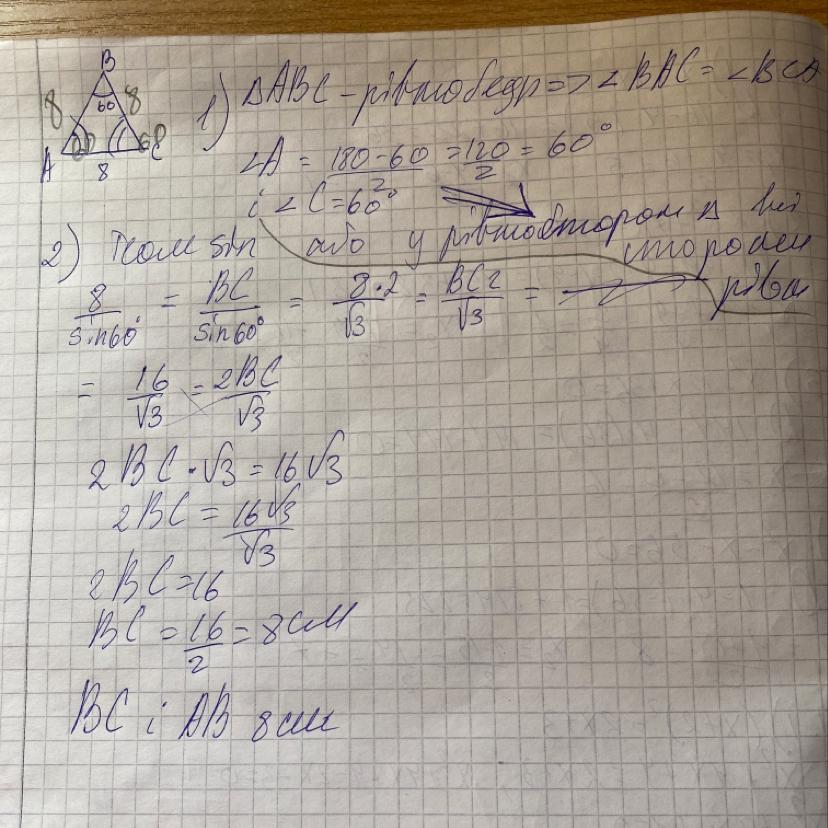 B
8 60 8
A 60 60 C
8
1) ΔABC - рівнобедр => ∠BAC = ∠BCA
∠A = (180-60)/2 = 120/2 = 60°
і ∠C = 60°
2) Теом sin або у рівностором Δ всі
сторони
рівні
8/sin60° = BC/sin60° = 8·2/√3 = BC2/√3 =
= 16/√3 = 2BC/√3
2BC·√3 = 16√3
2BC = 16√3/√3
2BC = 16
BC = 16/2 = 8 см
BC і AB 8 см